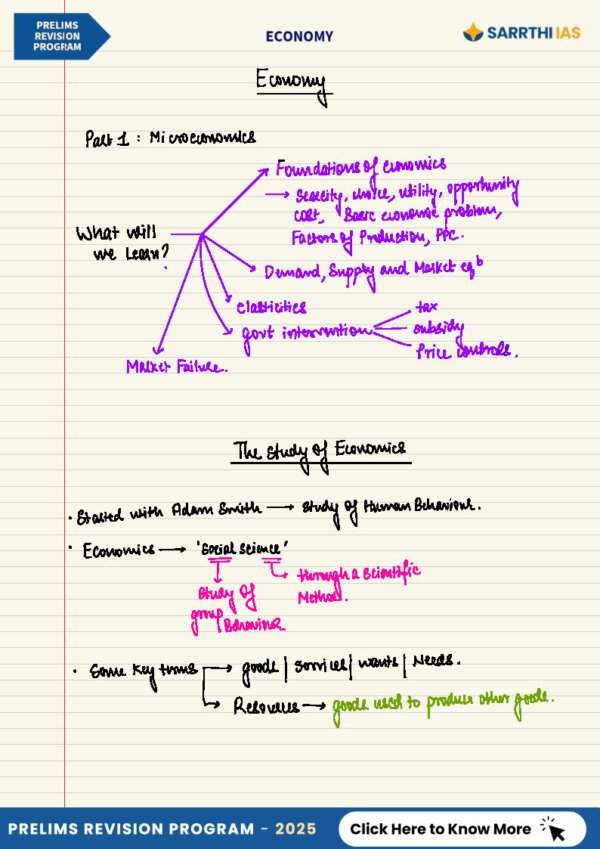 PRELIMS
REVISION
PROGRAM
ECONOMY
SARRTHI IAS
Economy
Part 1 : Microeconomics
What will
we learn?
Foundations of economics
Scarcity, choice, utility, opportunity
cost, Basic economic problem,
Factors of Production, PPC.
Demand, Supply and Market eqᵇ
elasticities
govt intervention
tax
subsidy
Price controls.
Market Failure.
The study of Economics
• Started with Adam Smith → study of Human Behaviour.
• Economics → 'Social Science'
study of
group Behaviour
through a scientific
Method.
• Some key terms → goods | services | wants | Needs.
→ Resources → goods used to produce other goods.
PRELIMS REVISION PROGRAM - 2025
Click Here to Know More